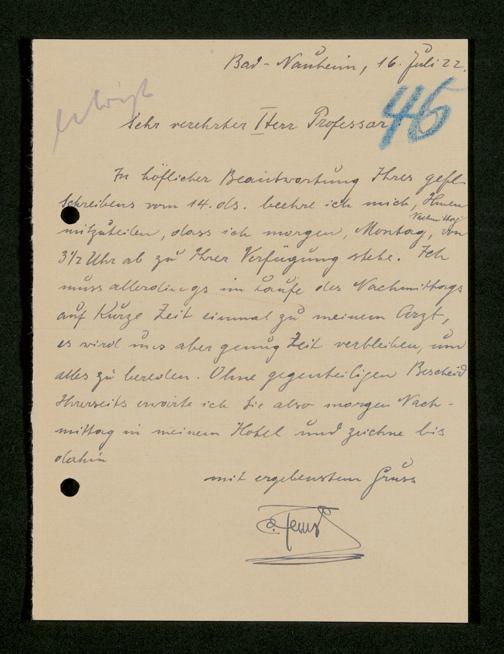 Bad-Nauheim, 16. Juli 22.
erledigt
46
Sehr verehrter Herr Professor,
In höflicher Beantwortung Ihres gefl.
Schreibens vom 14. ds. beehre ich mich, Ihnen
mitzuteilen, dass ich morgen, Montag, Nachmittag von
3½ Uhr ab zu Ihrer Verfügung stehe. Ich
muss allerdings im Laufe des Nachmittags
auf kurze Zeit einmal zu meinem Arzt,
es wird uns aber genug Zeit verbleiben, um
alles zu bereden. Ohne gegenteiligen Bescheid
Ihrerseits erwarte ich Sie also morgen Nach-
mittag in meinem Hotel und zeichne bis
dahin
mit ergebenstem Gruss